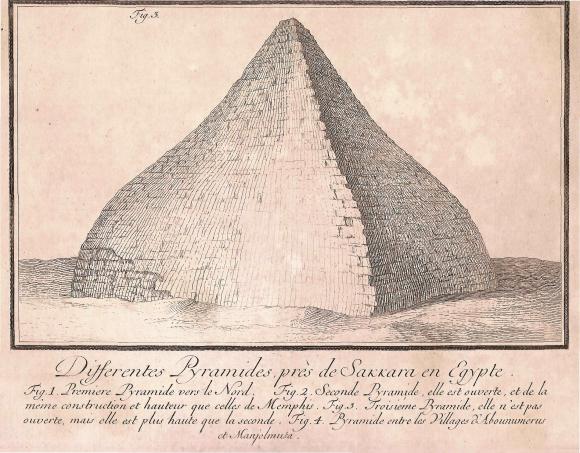 Fig. 3.
Differentes Pyramides, près de Sakkara en Egypte.
Fig. 1. Premiere Pyramide vers le Nord. Fig. 2. Seconde Pyramide, elle est ouverte, et de la
meine construction et hauteur que celles de Memphis. Fig. 3. Troisieme Pyramide, elle n'est pas
ouverte, mais elle est plus haute que la seconde. Fig. 4. Pyramide entre les Villages d'Abounumerus
et